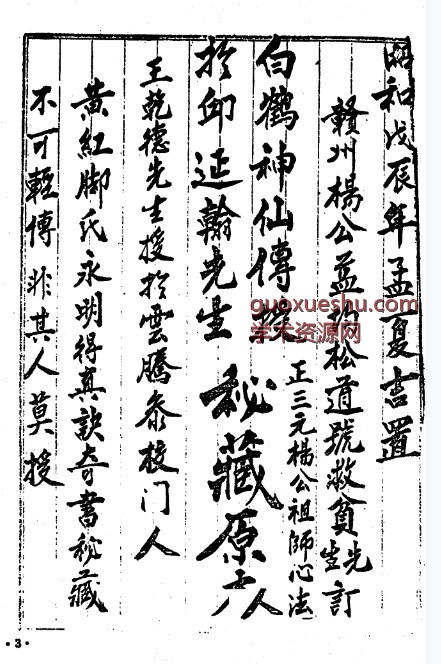 昭和戊辰年孟夏吉置
贛州楊公益號松道號救貧先生訂
白鶴神仙傳踪
正三元楊公祖師心法
於邱延翰先生
秘藏原
人
王乾德先生授於雲騰參校门人
黃紅脚氏永明得真訣奇書秘藏
不可輕傳非其人莫授
guoxueshu.com
学术资源网
·3·